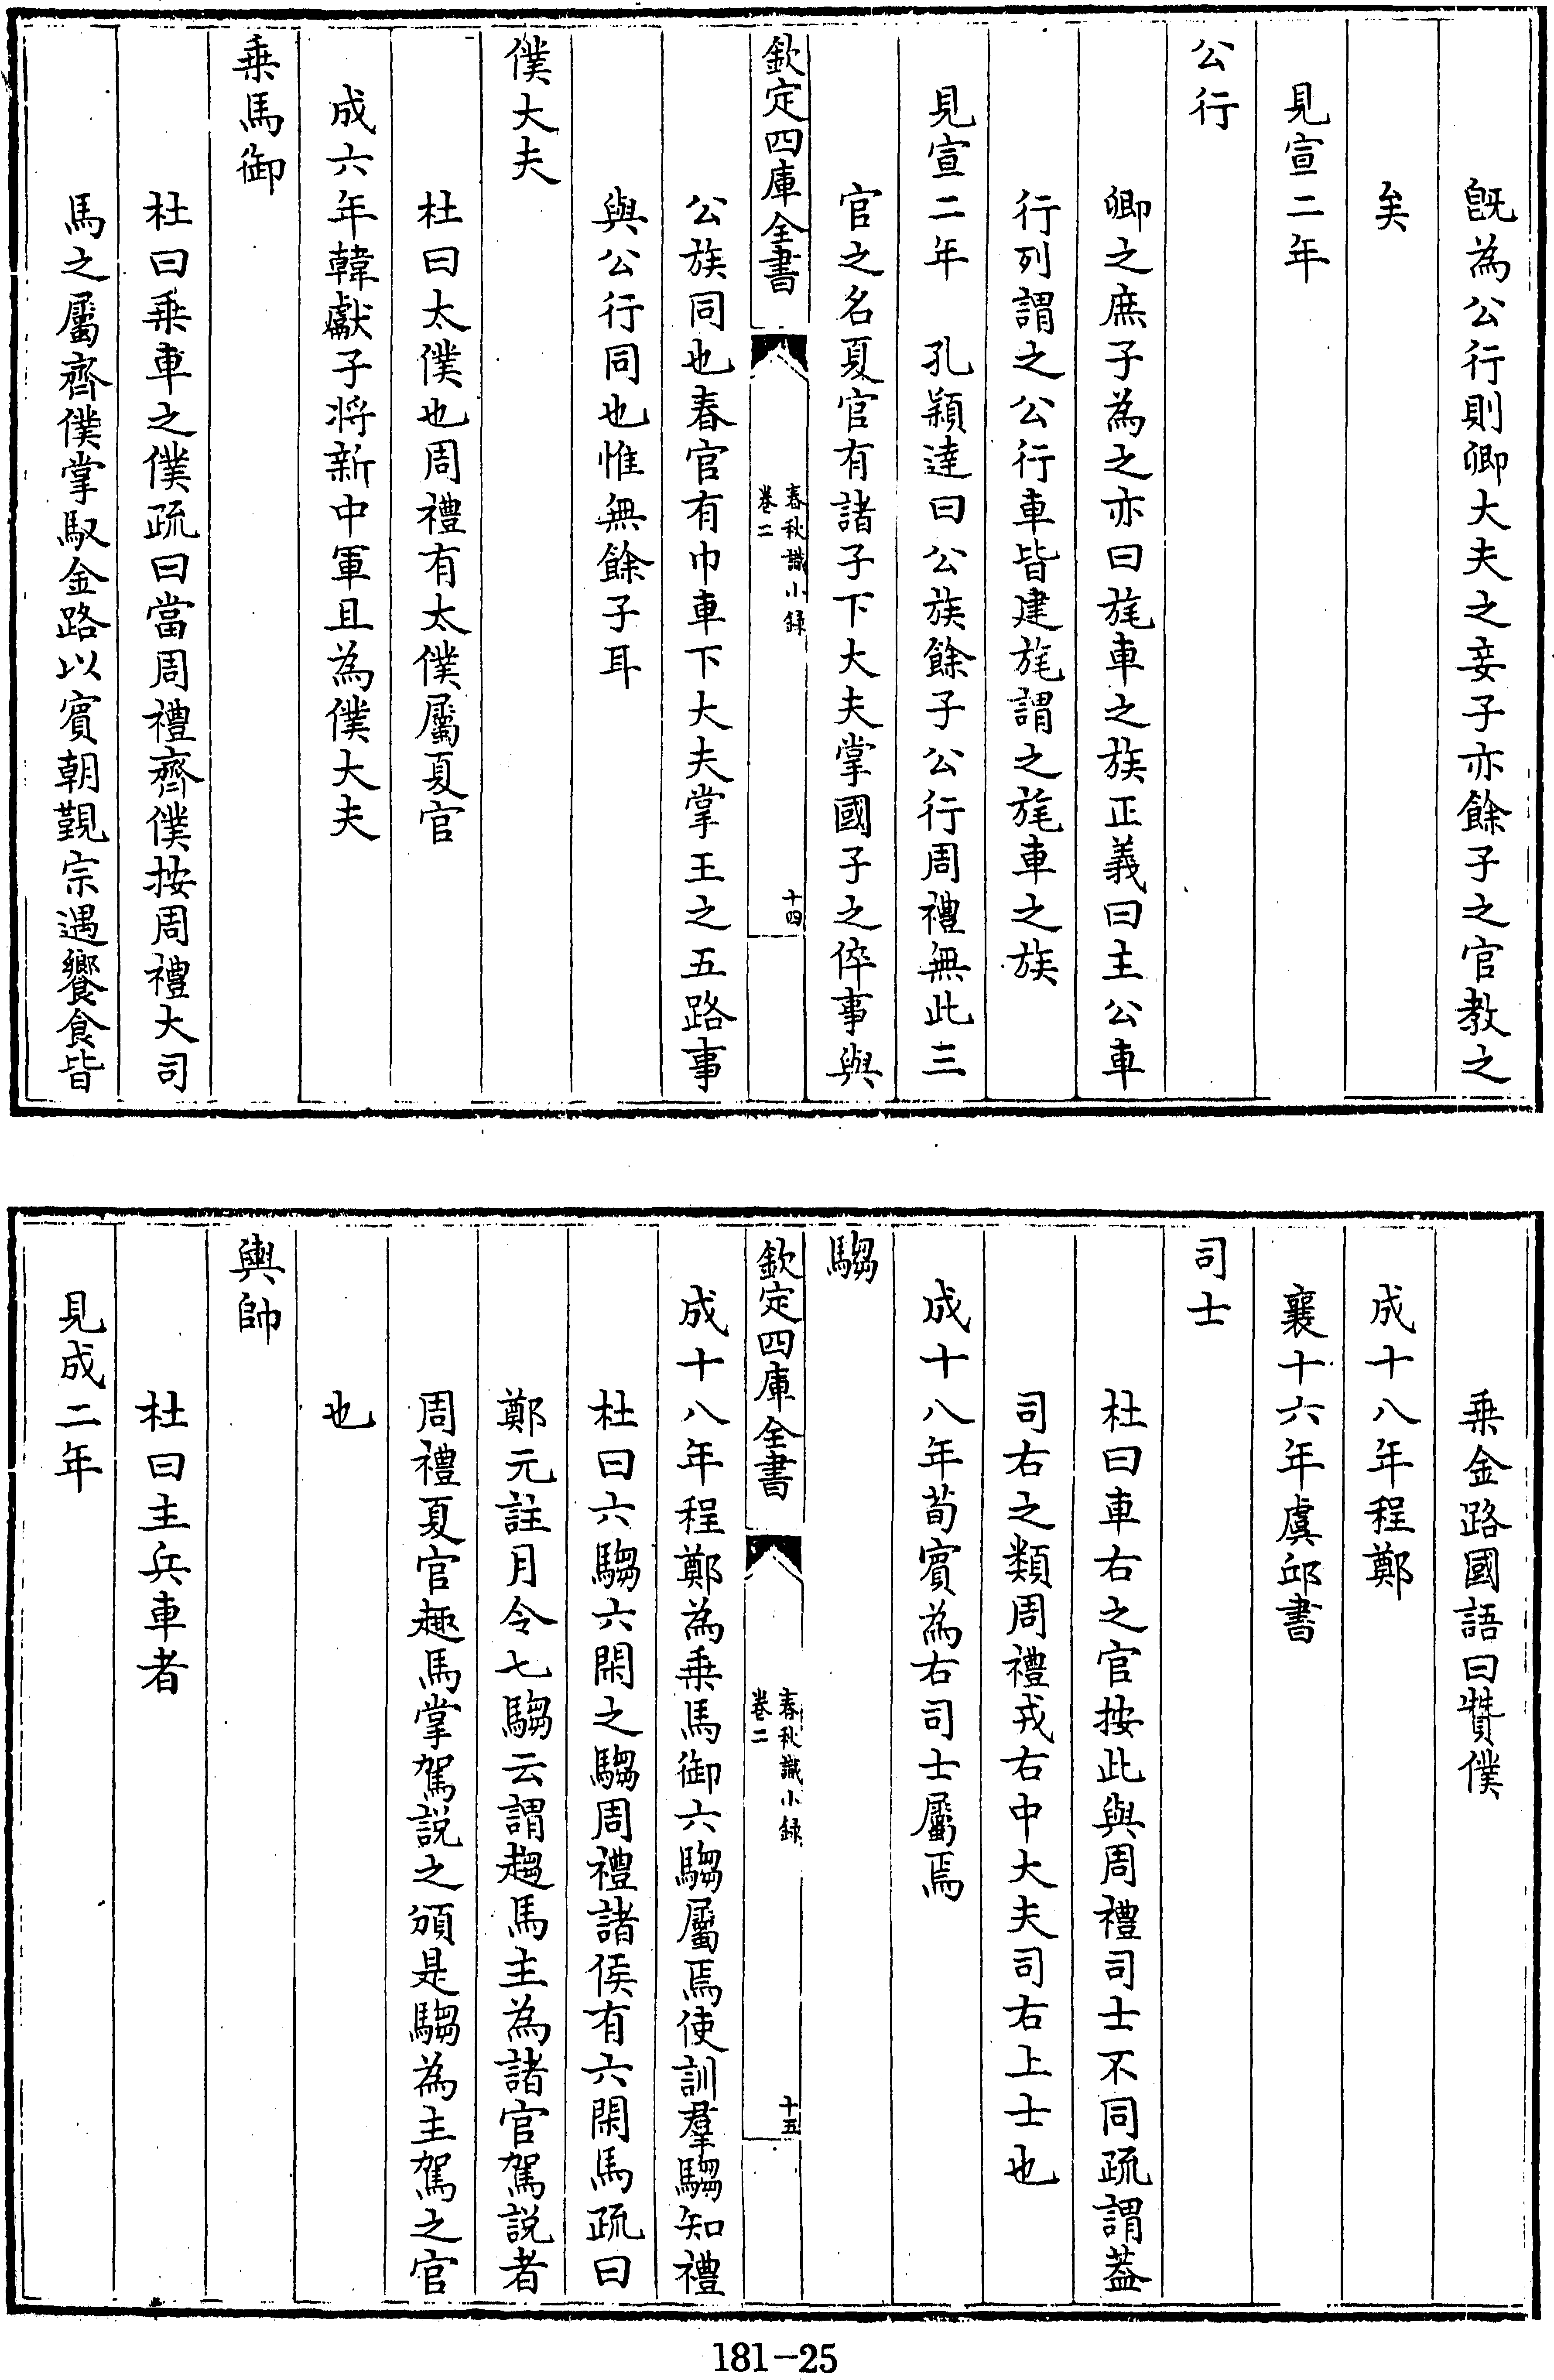 既為公行則卿大夫之妾子亦餘子之官教之
矣
見宣二年
公行
卿之庶子為之亦曰旄車之族正義曰主公車
行列謂之公行車皆建旄謂之旄車之族
見宣二年　孔穎達曰公族餘子公行周禮無此三
官之名夏官有諸子下大夫掌國子之倅事與
欽定四庫全書
春秋識小録
卷二
十四
公族同也春官有巾車下大夫掌王之五路事
與公行同也惟無餘子耳
僕大夫
杜曰太僕也周禮有太僕屬夏官
成六年韓獻子將新中軍且為僕大夫
乗馬御
杜曰乗車之僕疏曰當周禮齊僕按周禮大司
馬之屬齊僕掌馭金路以賓朝覲宗遇饗食皆
乗金路國語曰贊僕
成十八年程鄭
襄十六年虞邱書
司士
杜曰車右之官按此與周禮司士不同疏謂葢
司右之類周禮戎右中大夫司右上士也
成十八年荀賓為右司士屬焉
騶
欽定四庫全書
春秋識小録
卷二
十五
成十八年程鄭為乗馬御六騶屬焉使訓羣騶知禮
杜曰六騶六閑之騶周禮諸侯有六閑馬疏曰
鄭元註月令七騶云謂趨馬主為諸官駕説者
周禮夏官趣馬掌駕説之頒是騶為主駕之官
也
輿帥
杜曰主兵車者
見成二年
181-25